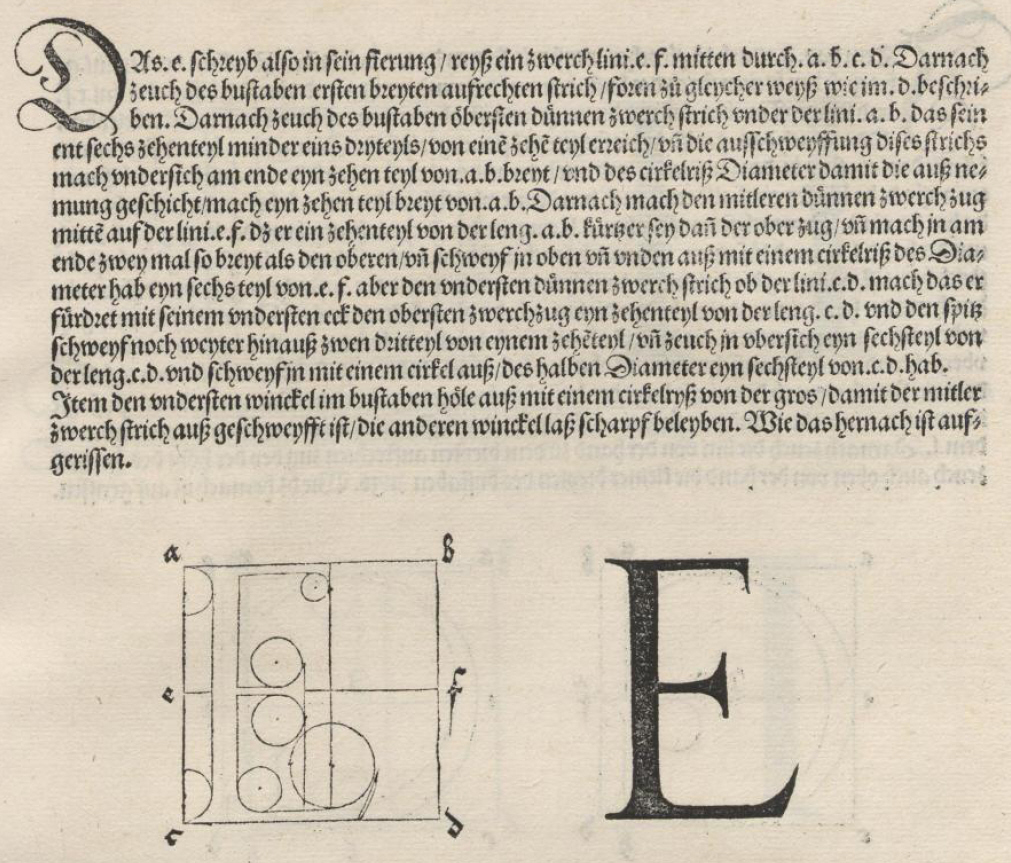 DAs. e. schreyb also in sein fierung / reyß ein zwerch lini. e. f. mitten durch. a. b. c. d. Darnach
zeuch des bustaben ersten breyten aufrechten strich / foren zů gleycher weyß wie im. d. beschri⸗
ben. Darnach zeuch des bustaben öbersten dünnen zwerch strich vnder der lini. a. b. das sein
ent sechs zehenteyl minder eins dryteyls / von einē zehē teyl erreich / vñ die außschweyffung dises strichs
mach vndersich am ende eyn zehen teyl von. a. b. breyt / vnd des cirkelriß Diameter damit die auß ne⸗
mung geschicht / mach eyn zehen teyl breyt von. a. b. Darnach mach den mitleren dünnen zwerch zug
mittē auf der lini. e. f. dz er ein zehenteyl von der leng. a. b. kürtzer sey dañ der ober zug / vñ mach jn am
ende zwey mal so breyt als den oberen / vñ schweyf jn oben vñ vnden auß mit einem cirkelriß des Dia⸗
meter hab eyn sechs teyl von. e. f. aber den vndersten dünnen zwerch strich ob der lini. c. d. mach das er
fürdret mit seinem vndersten eck den obersten zwerchzug eyn zehenteyl von der leng. c. d. vnd den spitz
schweyf noch weyter hinauß zwen dritteyl von eynem zehēteyl / vñ zeuch jn vbersich eyn sechsteyl von
der leng. c. d. vnd schweyf jn mit einem cirkel auß / des halben Diameter eyn sechsteyl von. c. d. hab.
Item den vndersten winckel im bustaben höle auß mit einem cirkelryß von der gros / damit der mitler
zwerch strich auß geschweyfft ist / die anderen winckel laß scharpf beleyben. Wie das hernach ist auf⸗
gerissen.
a b
e f
c d
E